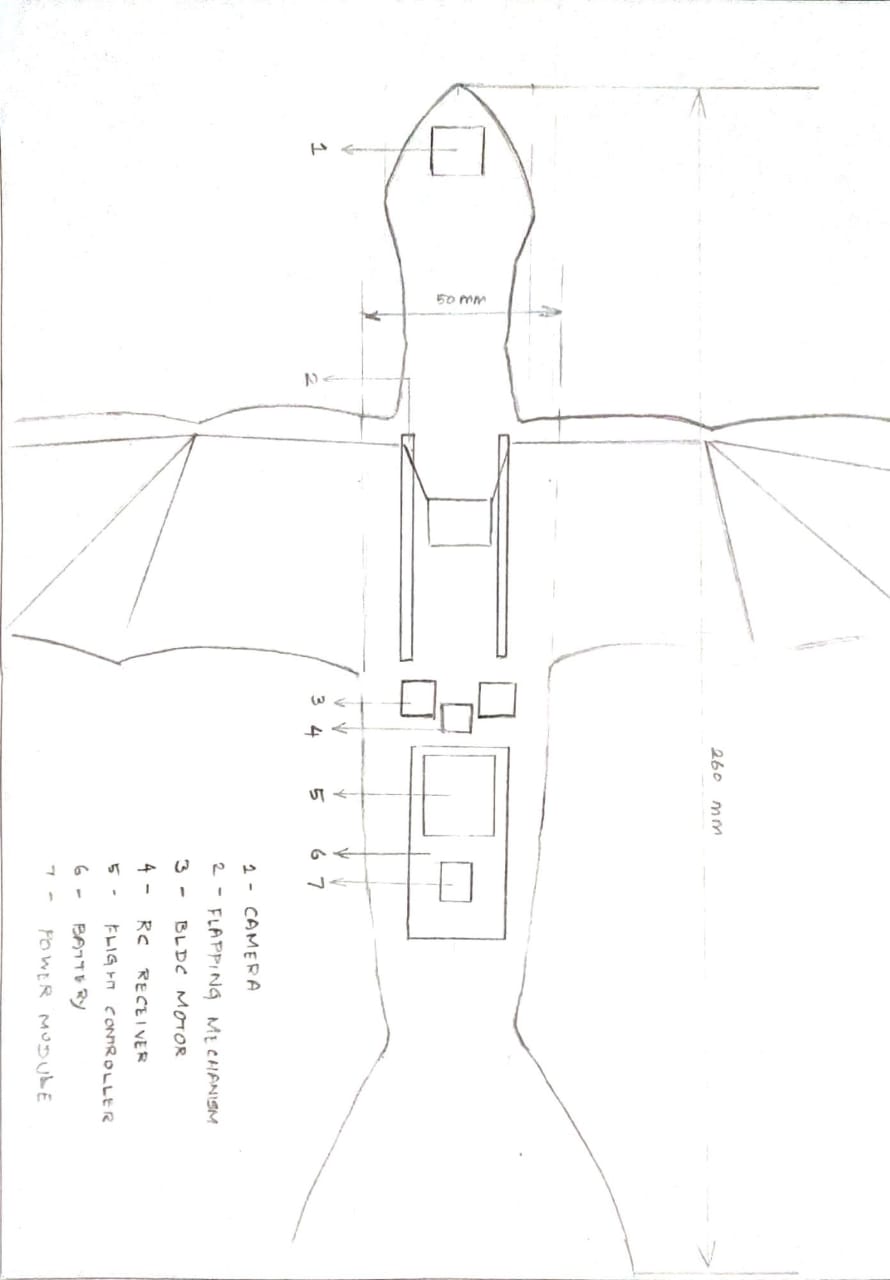 1
50 MM
2
3
4
5
6
7
260 MM
1 - CAMERA
2 - FLAPPING MECHANISM
3 - BLDC MOTOR
4 - RC RECEIVER
5 - FLIGHT CONTROLLER
6 - BATTERY
7 - POWER MODULE